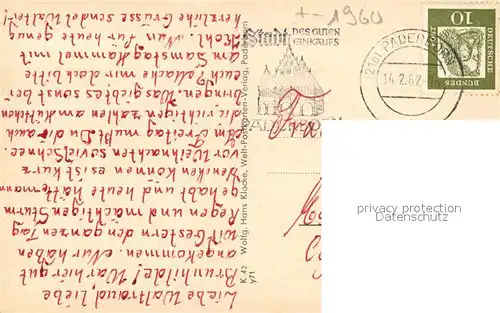 Liebe Waltraud liebe
Brunhilde! War hier gut
angekommen. Nur haben
wir Gestern den ganzen Tag
Regen und mächtigen Sturm
gehabt und heute hätte mann
denken können es ist kurz
vor Weihnachten soviel Schnee.
Am Freitag mußt Du auch
die richtigen zahlen am
bringen. Was giebt es sonst bei
euch Mache mir doch bitte
am Samstag Hammel mit
Kohl. Nun für heute genug
herzliche Grüsse sendet Walter.
K 42 Wolfg. Hans Klocke, Welt-Postkarten-Verlag, Paderborn
Y71
+-1960
Stadt DES GUTEN
EINKAUFS
(21a) PADERBORN
14.2.62
10
DEUTSCHE
BUNDES
Frau
privacy protection
Datenschutz